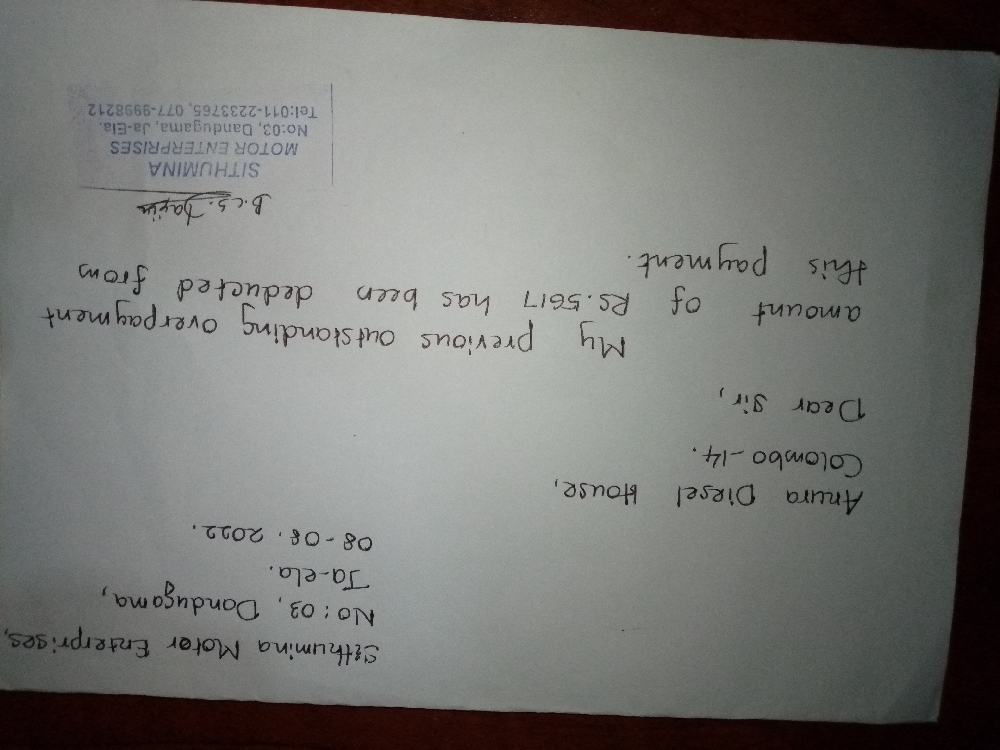 Sithumina Motor Enterprises,
No: 03, Dandugama,
Ja-ela.
08-08. 2022.
Anura Diesel House,
Colombo-14.
Dear Sir,
My previous outstanding overpayment
amount of Rs. 5617 has been deducted from
this payment.
D.C.S.
SITHUMINA
MOTOR ENTERPRISES
No:03, Dandugama, Ja-Ela.
Tel:011-2233765, 077-9998212